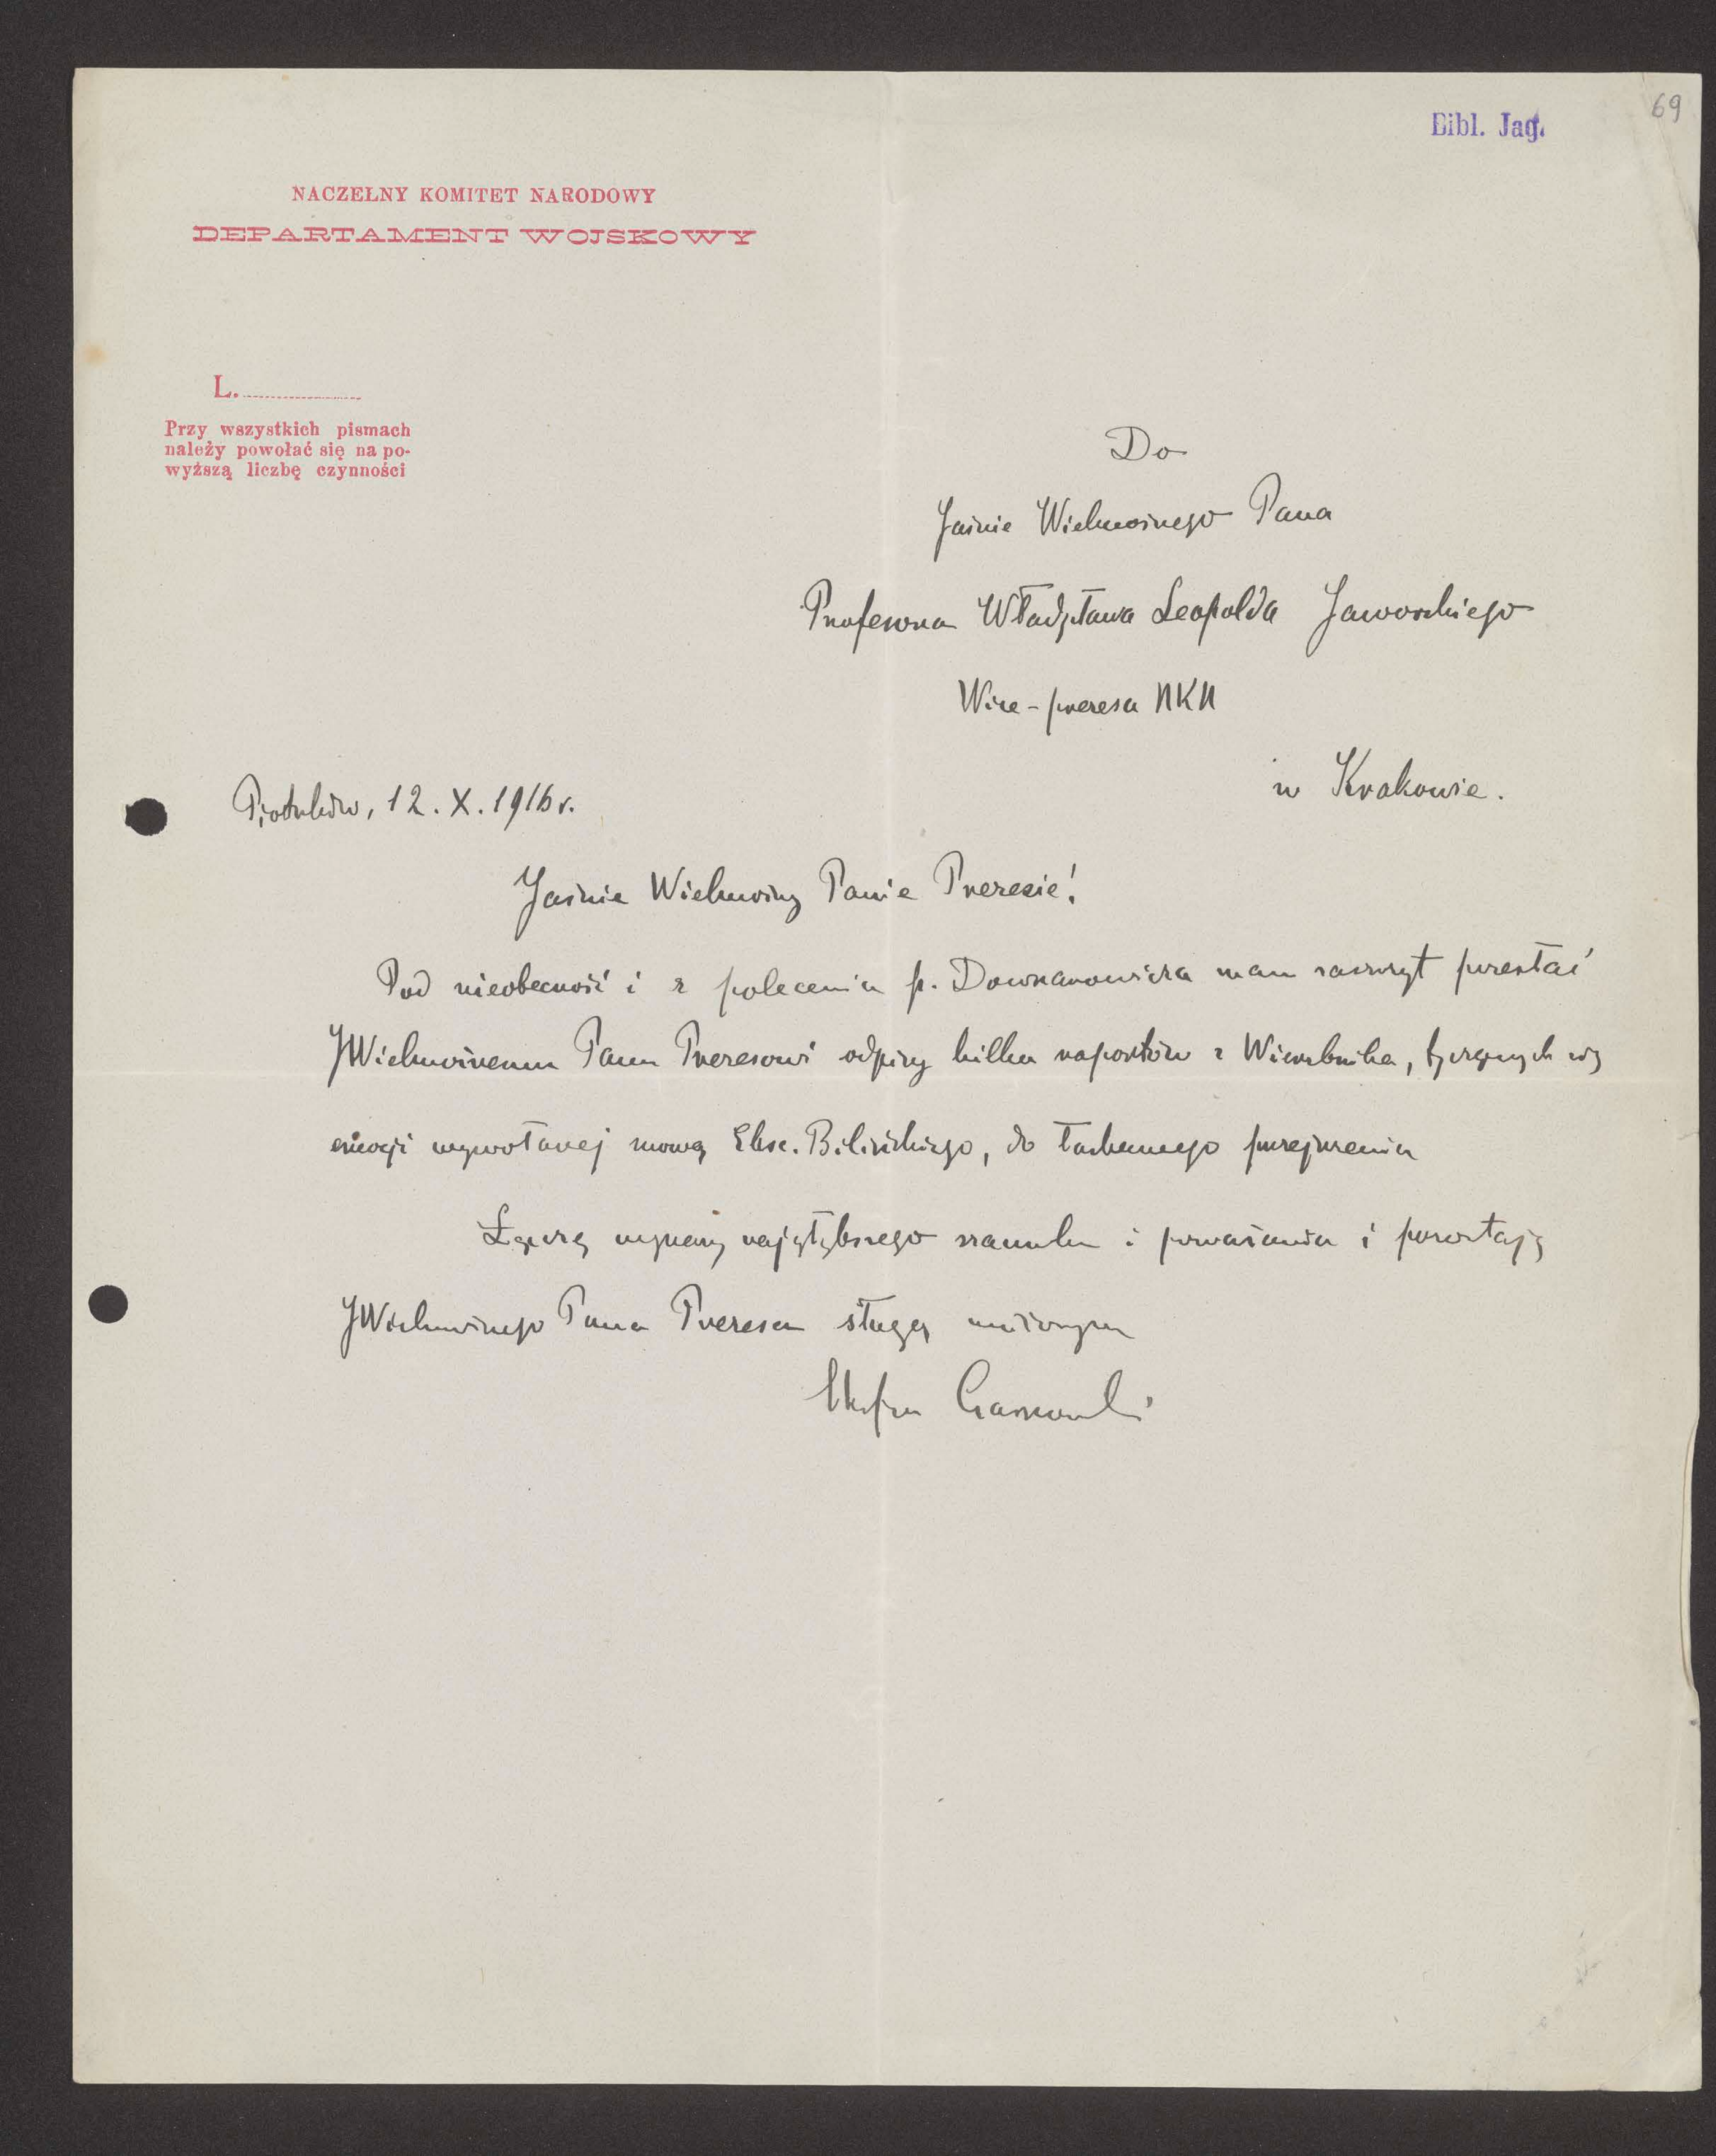 69
Bibl. Jag.
NACZELNY KOMITET NARODOWY
DEPARTAMENT WOJSKOWY
L.
Przy wszystkich pismach
należy powołać się na po-
wyższą liczbę czynności
Do
Jaśnie Wielmożnego Pana
Profesora Władysława Leopolda Jaworskiego
Wice-prezesa NKN
w Krakowie.
Piotrków, 12. X. 1916 r.
Jaśnie Wielmożny Panie Prezesie!
Pod nieobecność i z polecenia p. Downarowicza mam zaszczyt przesłać
JWielmożnemu Panu Prezesowi odpisy kilku raportów z Wierzbnika, tyczących się
emocji wywołanej mową Eksc. Bilińskiego, do łaskawego przejrzenia
Łączę wyrazy najgłębszego szacunku i poważania i pozostaję
JWielmożnego Pana Prezesa sługą uniżonym